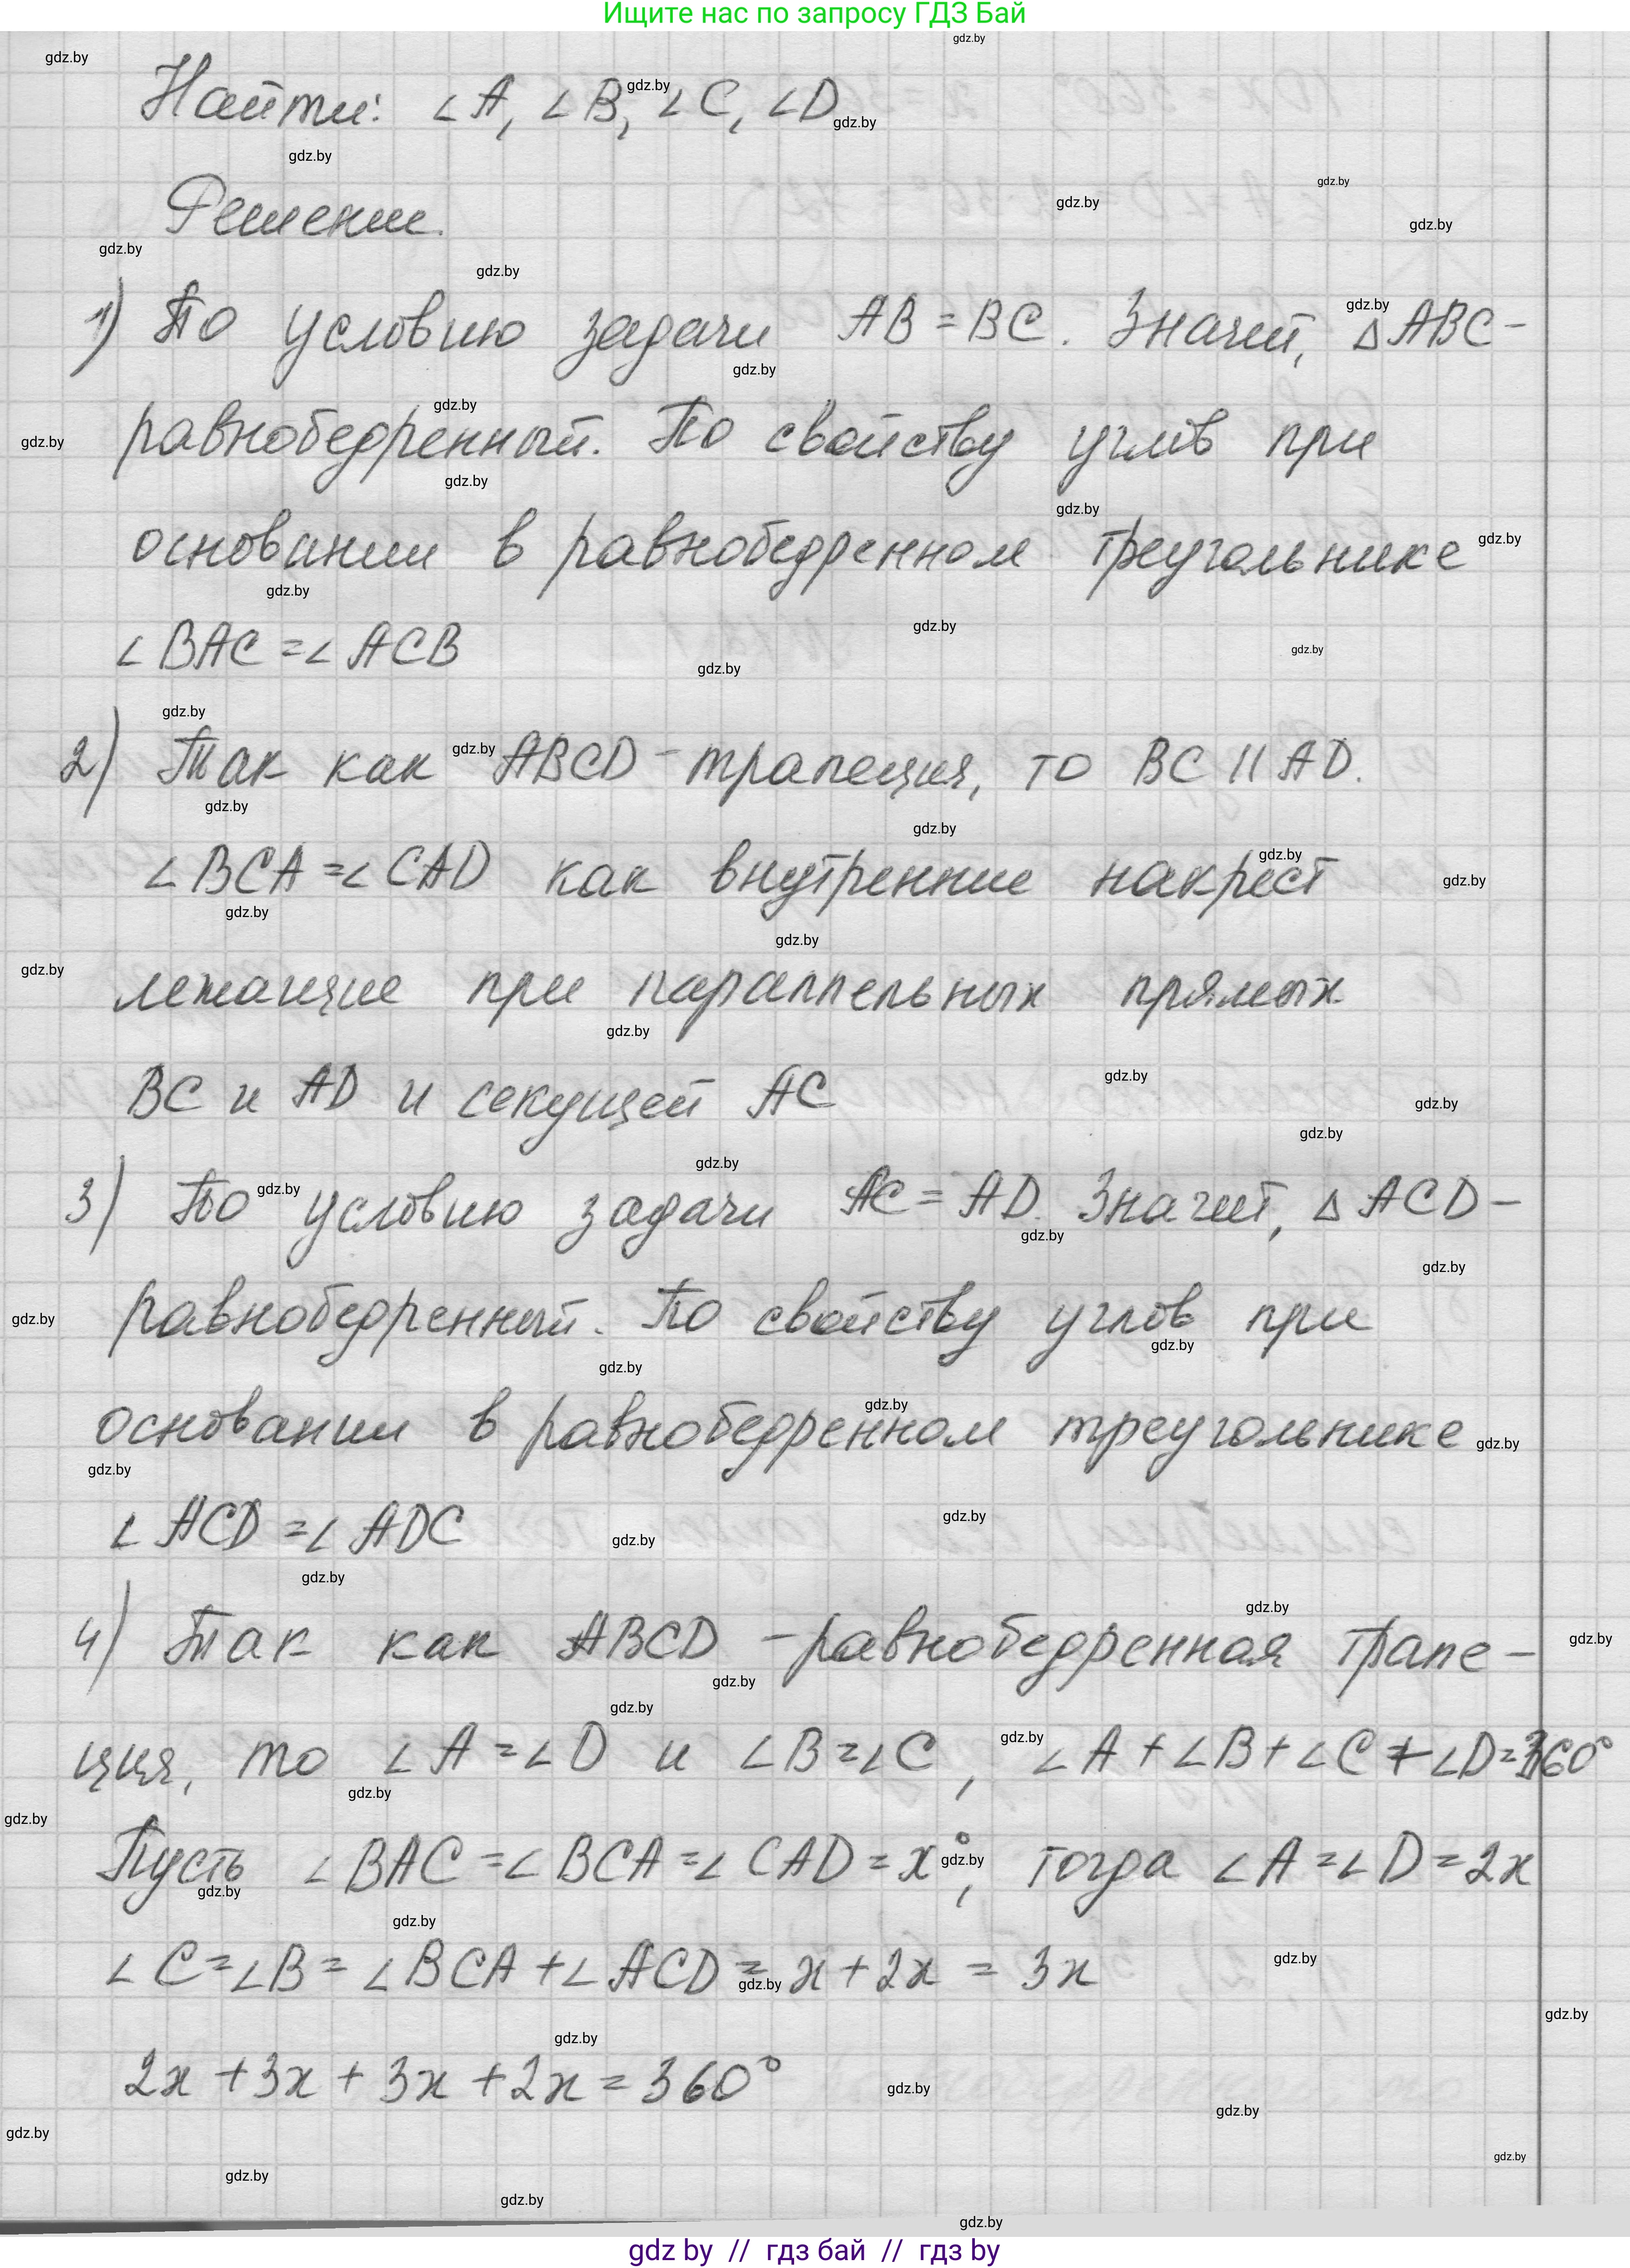 Ищите нас по запросу ГДЗ Бай
Найти: ∠A, ∠B, ∠C, ∠D
Решение.
1) По условию задачи AB = BC. Значит, △ABC -
равнобедренный. По свойству углов при
основании в равнобедренном треугольнике
∠BAC = ∠ACB
2) Так как ABCD - трапеция, то BC || AD.
∠BCA = ∠CAD как внутренние накрест
лежащие при параллельных прямых
BC и AD и секущей AC
3) По условию задачи AC = AD. Значит, △ACD -
равнобедренный. По свойству углов при
основании в равнобедренном треугольнике
∠ACD = ∠ADC
4) Так как ABCD - равнобедренная трапе-
ция, то ∠A = ∠D и ∠B = ∠C, ∠A + ∠B + ∠C + ∠D = 360°
Пусть ∠BAC = ∠BCA = ∠CAD = x°, тогда ∠A = ∠D = 2x
∠C = ∠B = ∠BCA + ∠ACD = x + 2x = 3x
2x + 3x + 3x + 2x = 360°
gdz.by
gdz by // гдз бай // гдз by